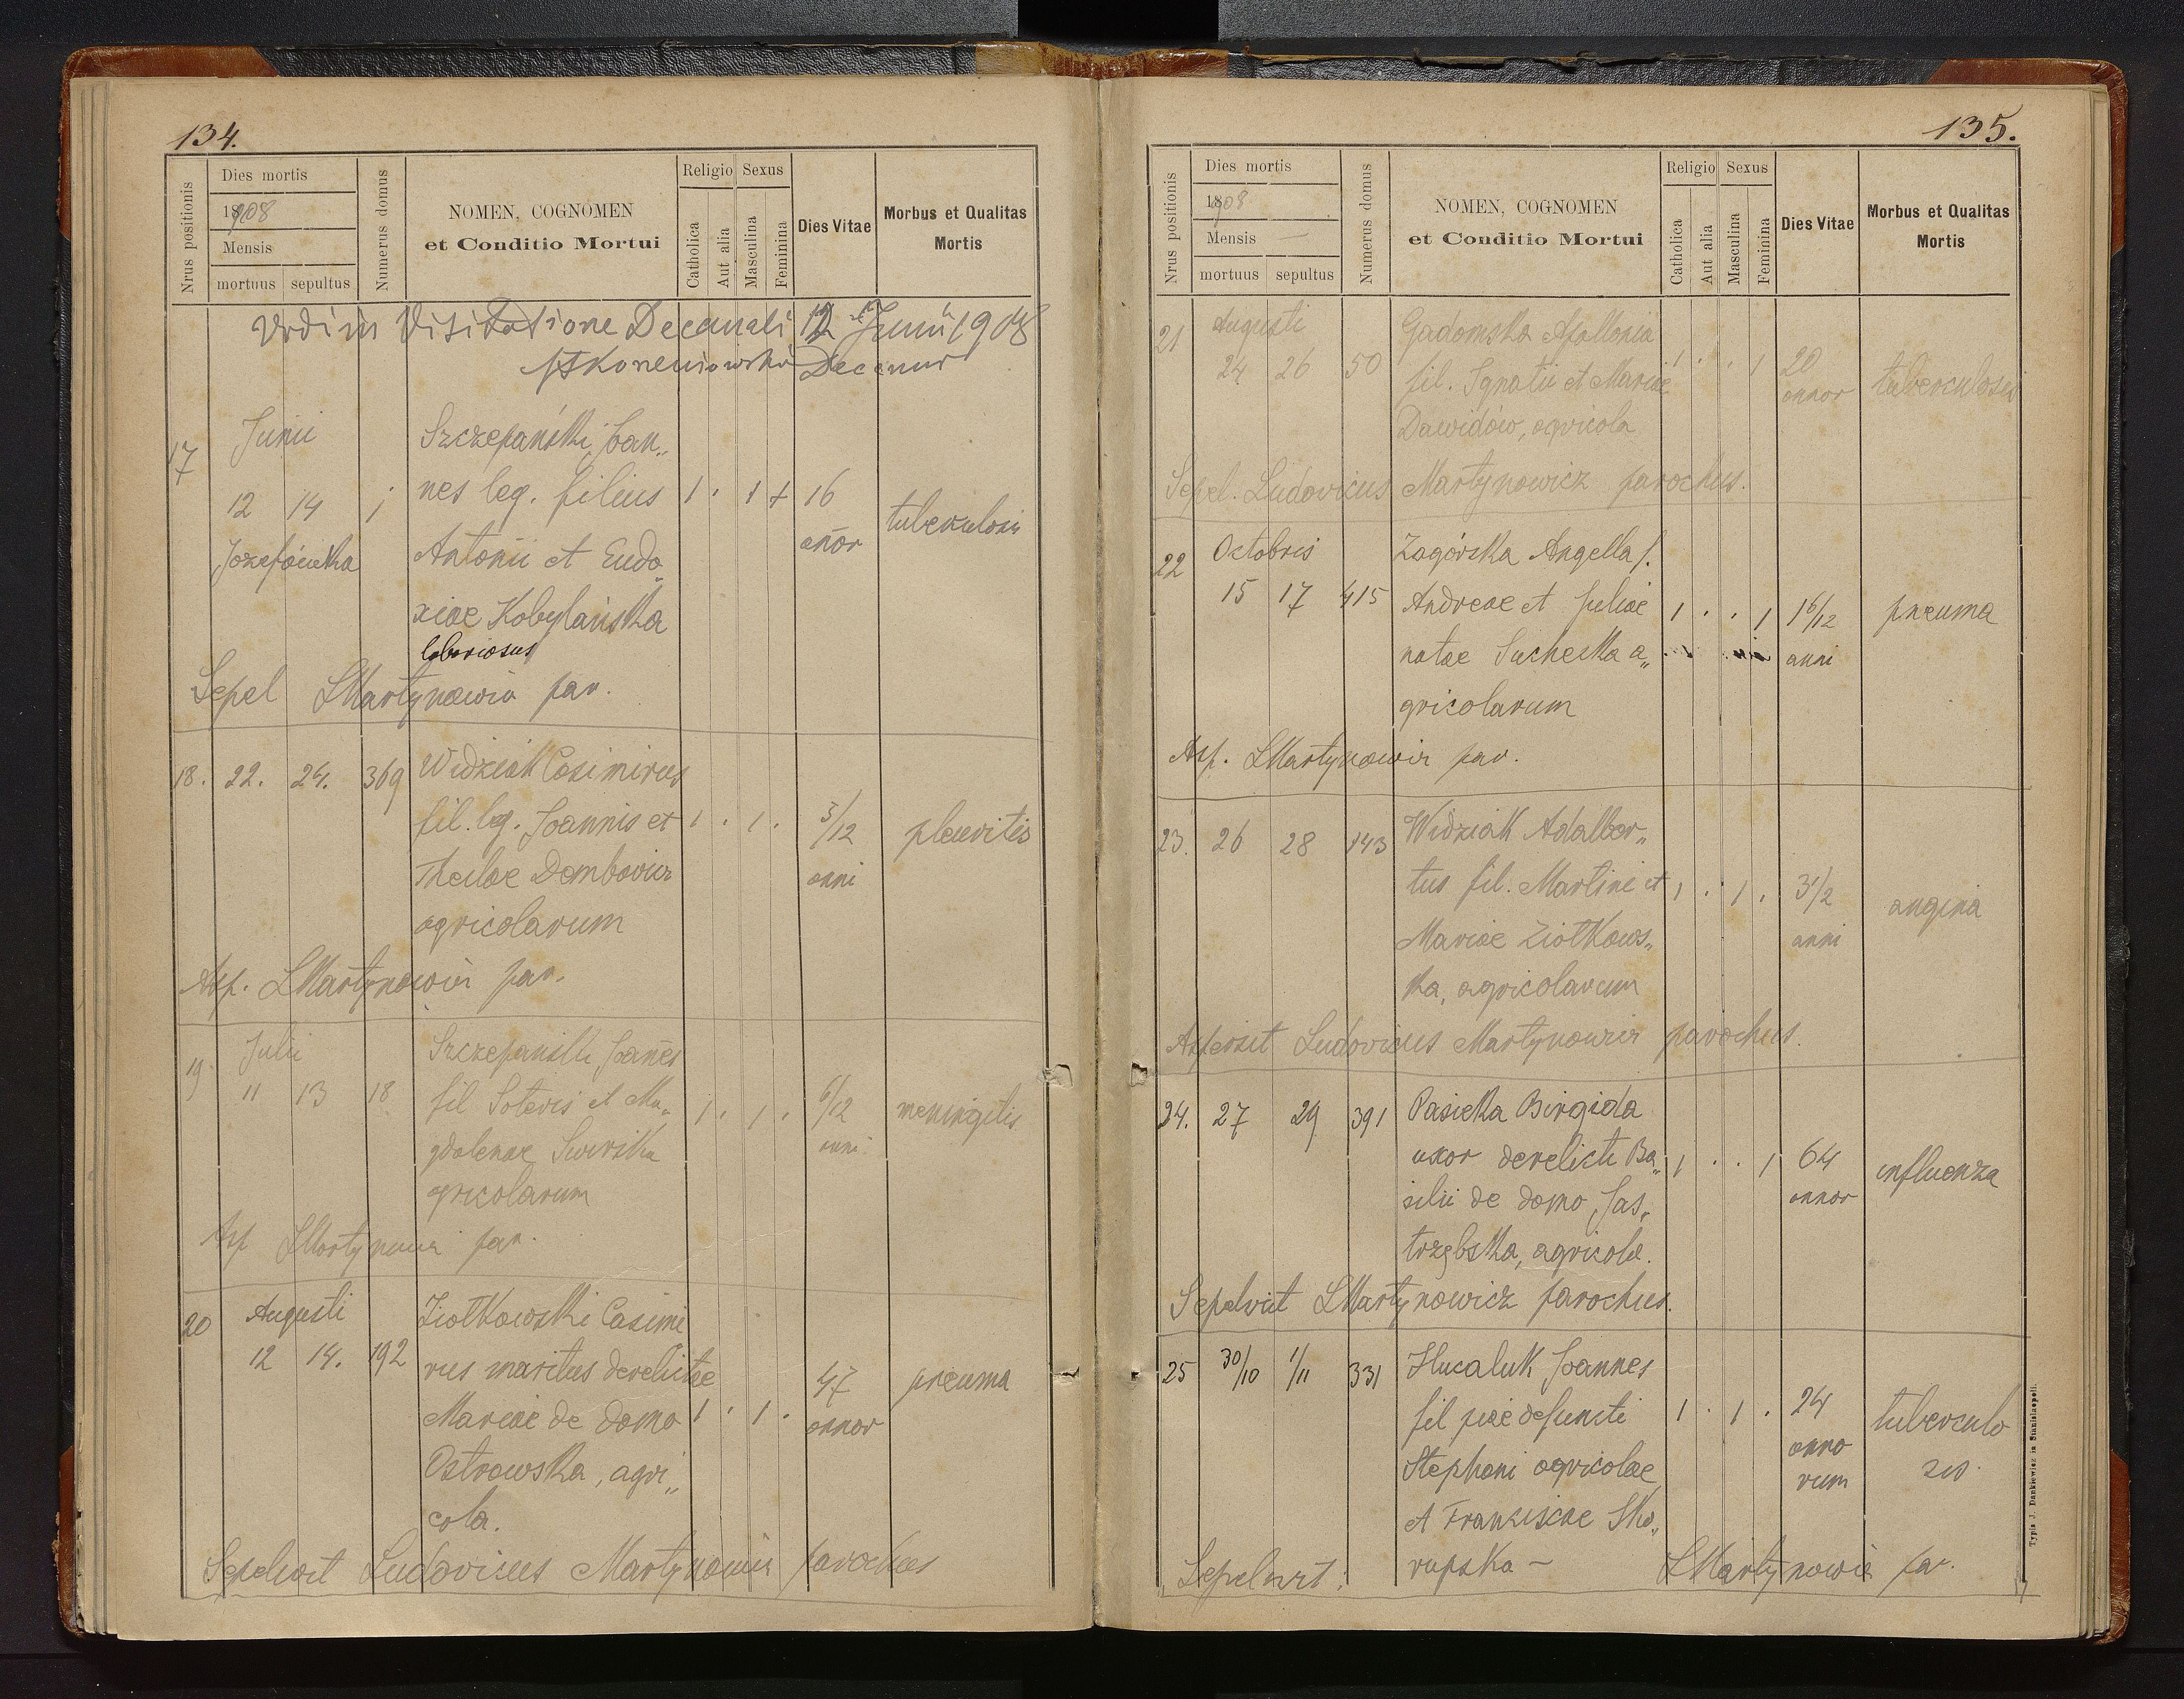 134.
Nrus positionis
Dies mortis
1908
Mensis
mortuus sepultus
Numerus domus
NOMEN, COGNOMEN
et Conditio Mortui
Religio Sexus
Catholica
Aut alia
Masculina
Feminina
Dies Vitae
Morbus et Qualitas
Mortis
Vidi in Visitatione Decanali 12 Junii 1908
Decanus
17
Junii
12 14 1
Józefówka
Szczepański Joan„
nes leg. filius
Antonii et Eudo„
xiae Kobylańska
laboriosus
1 . 1 +
16
anor
tuberculosis
Sepel LMartynowicz par.
18. 22. 24. 369
Widziak Casimirus
fil. leg. Joannis et
Theclae Dombowicz
agricolarum
1 . 1 .
3/12
anni
pleuritis
Asp. LMartynowicz par.
19
Julii
11 13 18
Szczepański Joanes
fil Soteris et Ma„
gdalenae Swirska
agricolarum
1 . 1 .
6/12
anni
meningitis
Asp LMartynowicz par.
20
Augusti
12 14. 192
Ziołkowski Casimi
rus maritus derelictae
Mariae de domo
Ostrowska, agri„
cola.
1 . 1 .
47
annor
pneuma
Sepelivit Ludovicus Martynowicz parochus
135.
Nrus positionis
Dies mortis
1908
Mensis —
mortuus sepultus
Numerus domus
NOMEN, COGNOMEN
et Conditio Mortui
Religio Sexus
Catholica
Aut alia
Masculina
Feminina
Dies Vitae
Morbus et Qualitas
Mortis
21
Augusti
24 26 50
Gadomska Apollonia
fil. Ignatii et Mariae
Dawidów, agricola
1 . . 1
20
annor
tuberculosis
Sepel. Ludovicus Martynowicz parochus.
22
Octobris
15 17 415
Zagórska Angella f.
Andreae et Juliae
natae Suchecka a„
gricolarum
1 . . 1
1 6/12
anni
pneuma
Asp. LMartynowicz par.
23. 26 28 143
Widziak Adalber„
tus fil. Martini et
Mariae Ziołkows„
ka, agricolarum
1 . 1 .
3 1/2
anni
angina
Aspersit Ludovicus Martynowicz parochus.
24. 27 29 391
Pasieka Birgida
uxor derelicti Ba„
silii de domo Jas„
trzębska, agricolae.
1 . . 1
64
annor
influenza
Sepelivit LMartynowicz parochus.
25 30/10 1/11 331
Hucaluk Joannes
fil piae defuncti
Stephani agricolae
et Franziscae Sko„
rupska –
1 . 1 .
24
anno
rum
tuberculo
sis
Sepelivit: LMartynowicz par.
Typis J. Dankiewicz in Stanislaopoli.